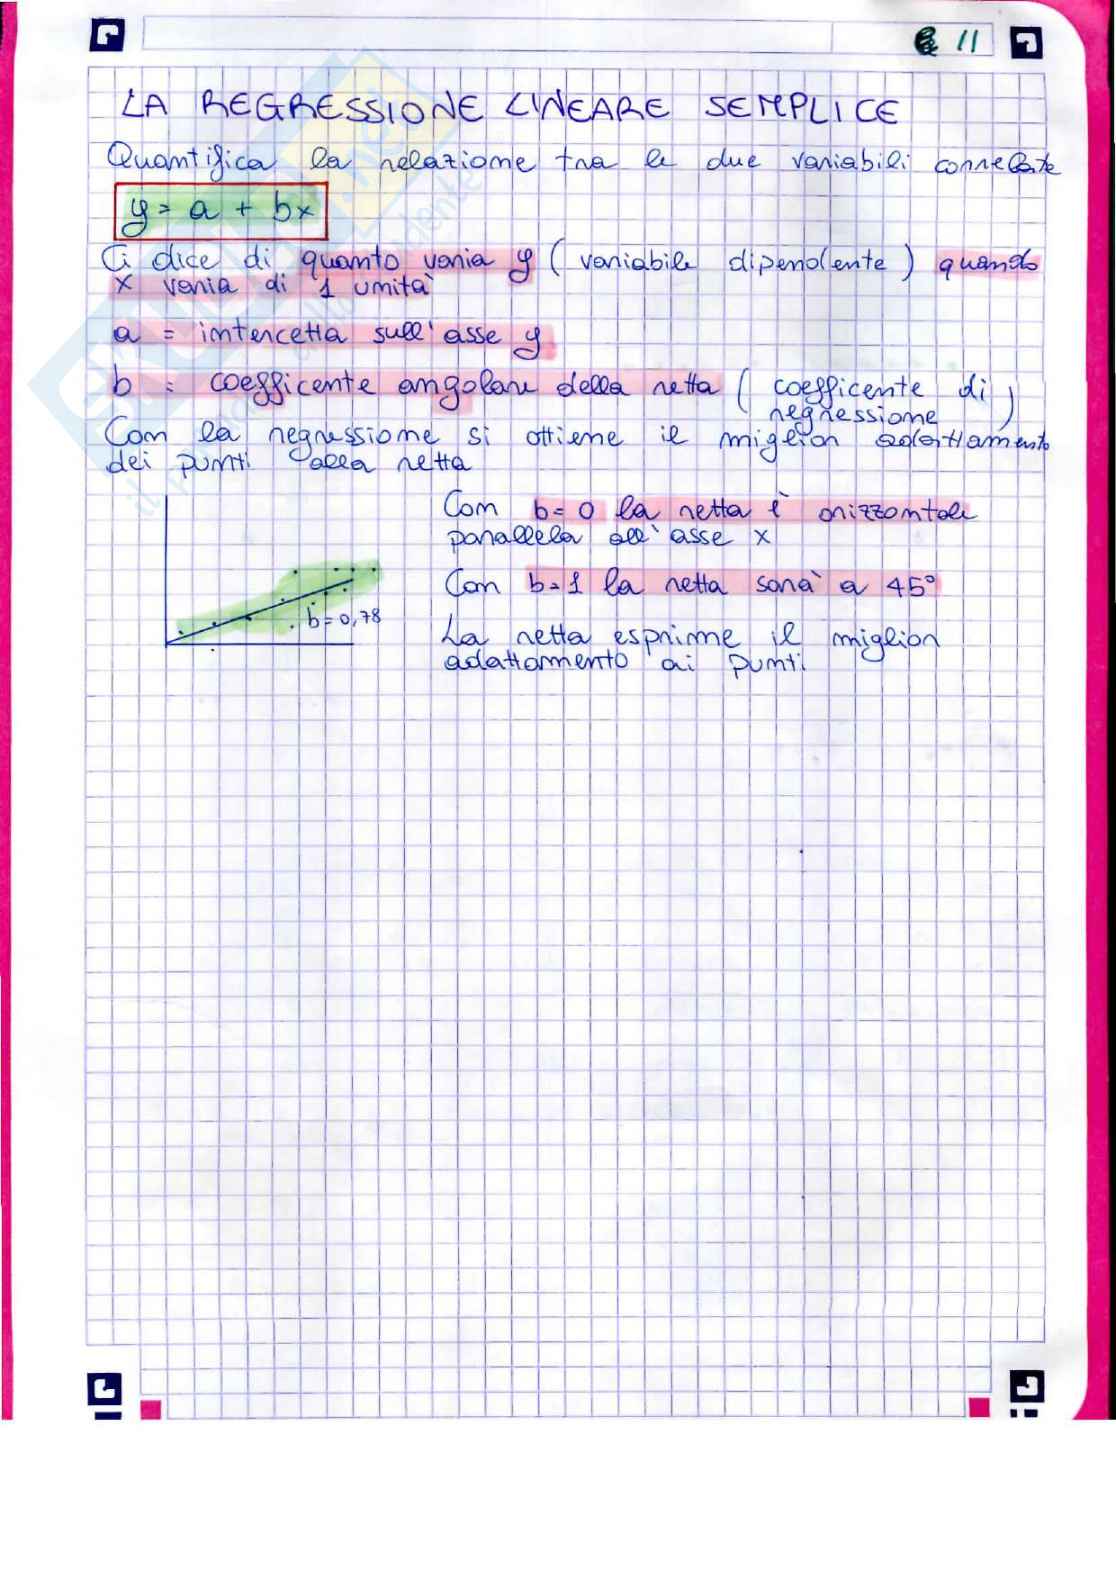 11
LA REGRESSIONE LINEARE SEMPLICE
Quantifica la relazione tra le due variabili correlate
y = a + bx
Ci dice di quanto varia y (variabile dipendente) quando
x varia di 1 unità
a = intercetta sull'asse y
b = coefficente angolare della retta (coefficente di
regressione)
Con la regressione si ottiene il miglior adattamento
dei punti alla retta
Con b=0 la retta è orizzontale
parallela all'asse x
Con b=1 la retta sarà a 45°
b=0,78
La retta esprime il miglior
adattamento ai punti